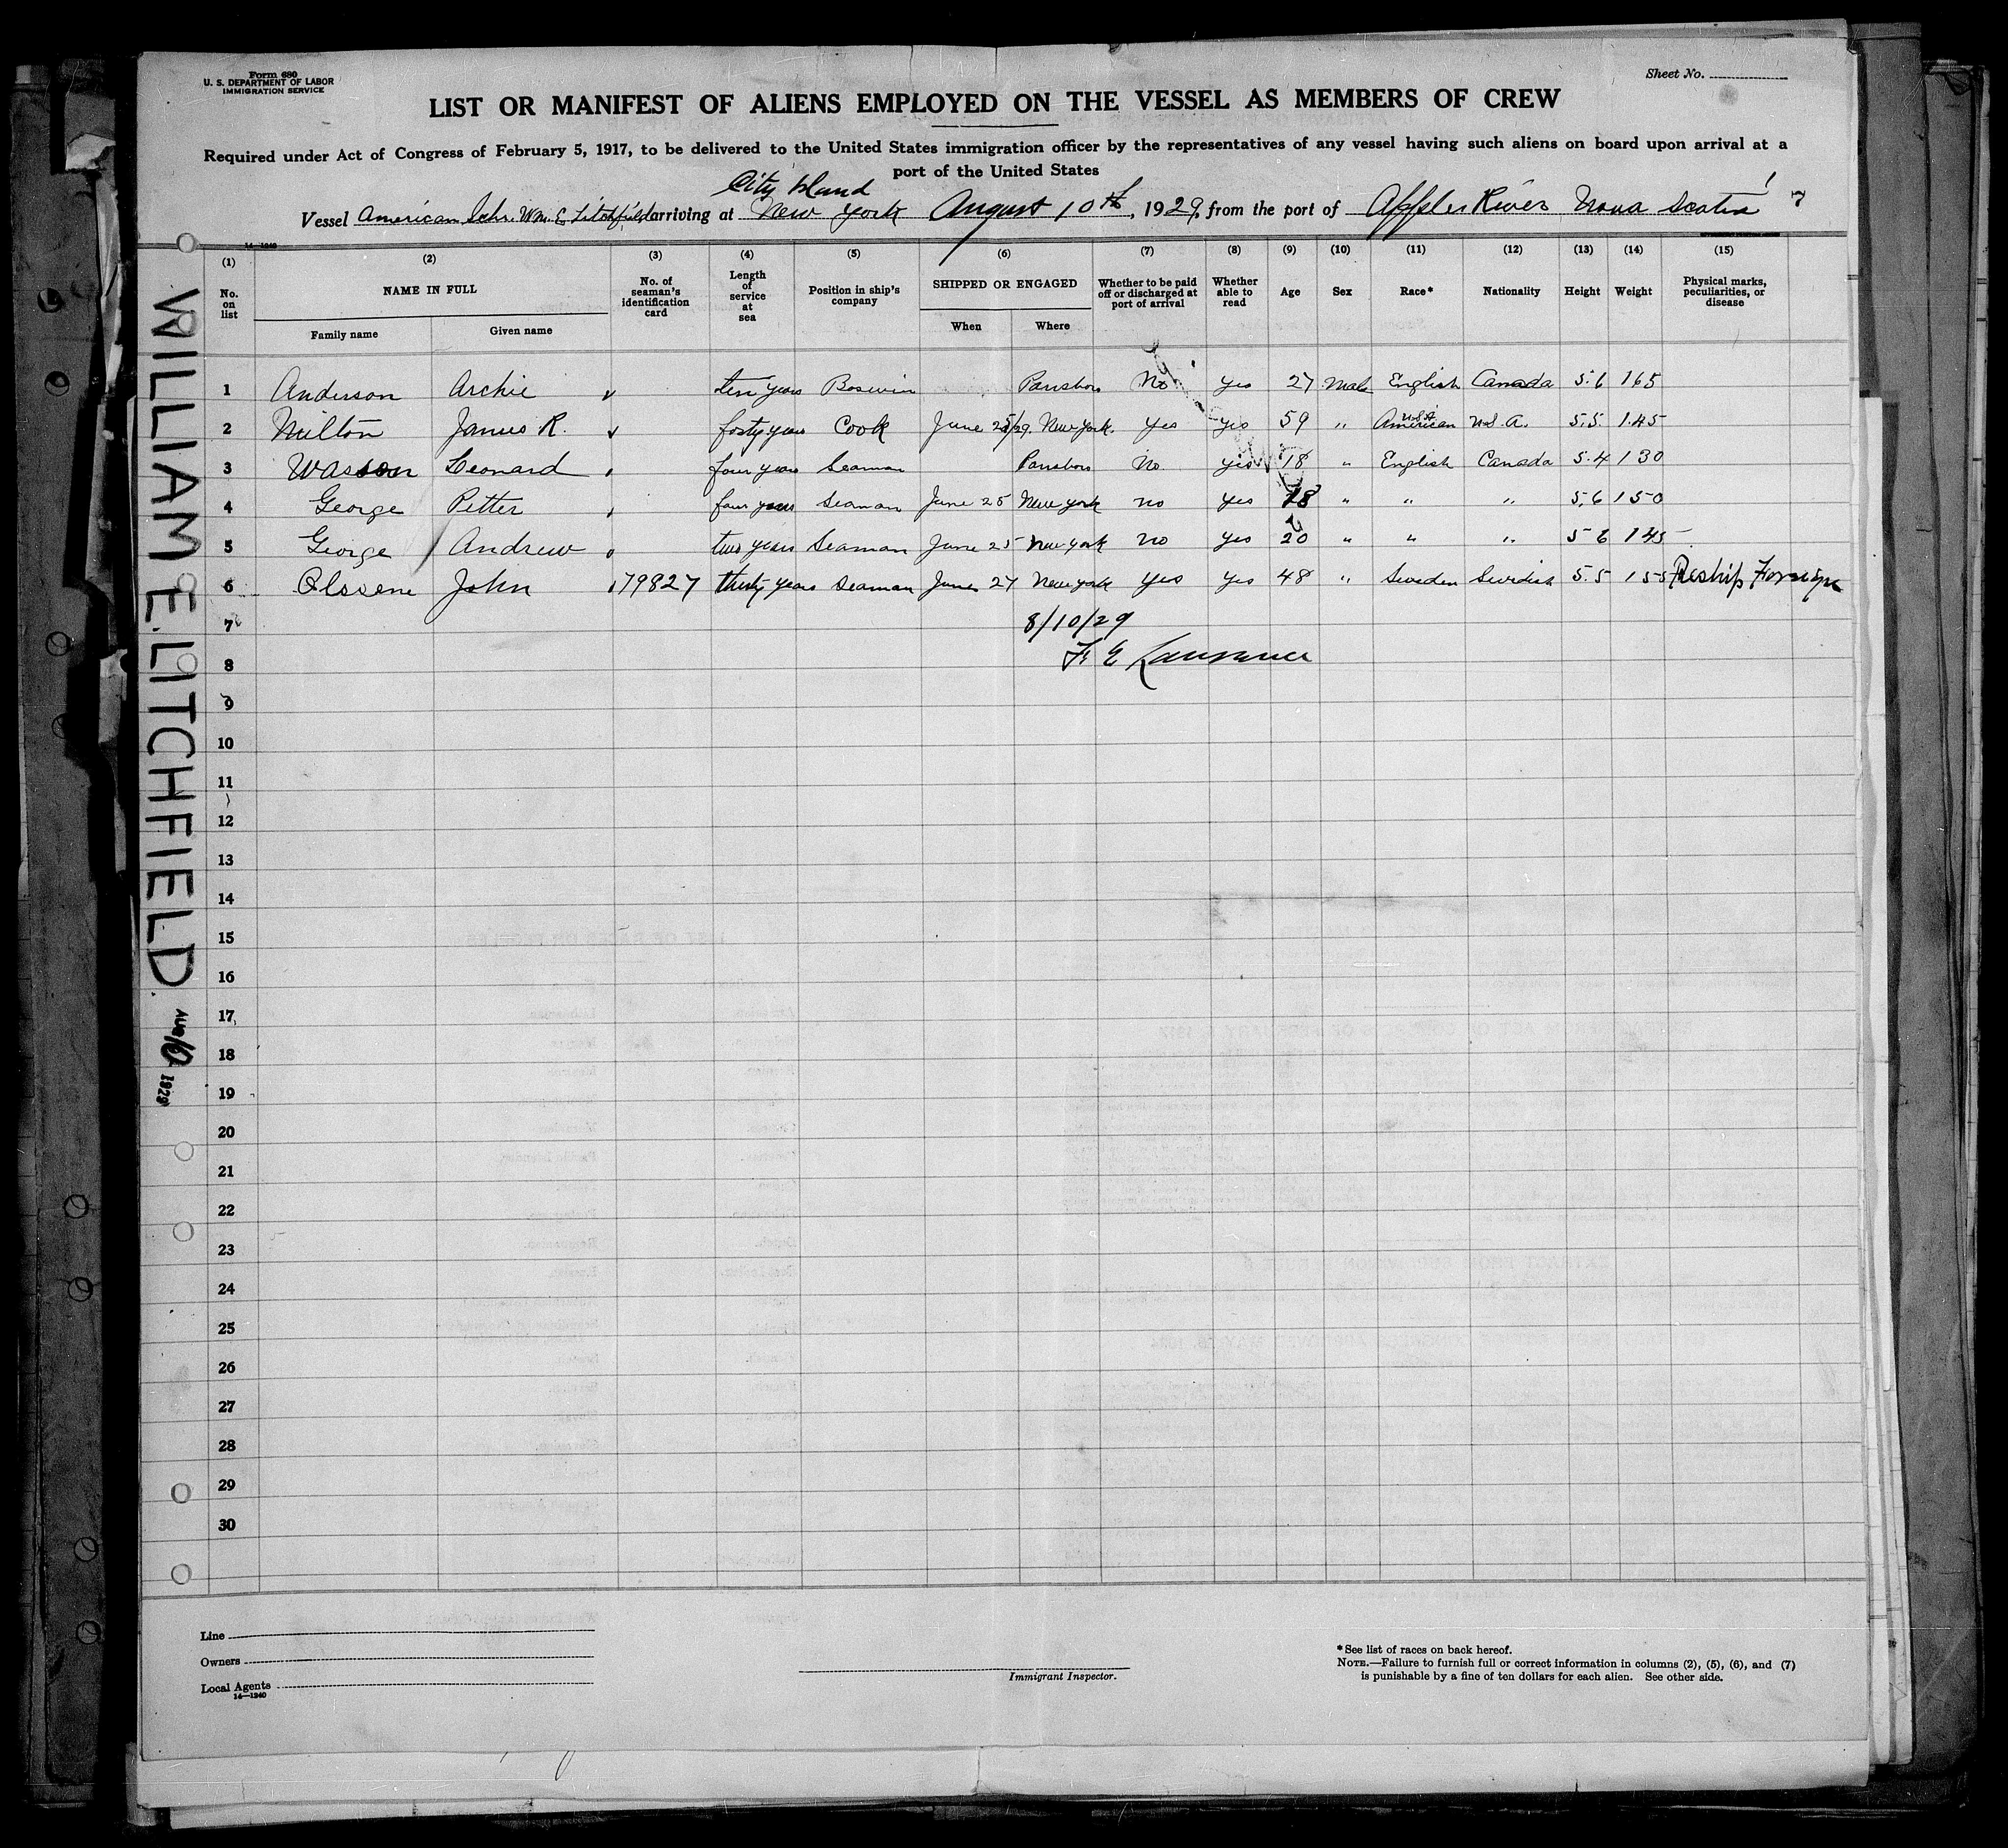 Form 680
U. S. DEPARTMENT OF LABOR
IMMIGRATION SERVICE
Sheet No.
LIST OR MANIFEST OF ALIENS EMPLOYED ON THE VESSEL AS MEMBERS OF CREW
Required under Act of Congress of February 5, 1917, to be delivered to the United States immigration officer by the representatives of any vessel having such aliens on board upon arrival at a
port of the United States
City Island
Vessel American Schr. Wm. E. Litchfield arriving at New York August 10th, 1929, from the port of Appler River Nova Scotia 7
14—1240
(1) (2) (3) (4) (5) (6) (7) (8) (9) (10) (11) (12) (13) (14) (15)
No. on list
NAME IN FULL
Family name Given name
No. of seaman's identification card
Length of service at sea
Position in ship's company
SHIPPED OR ENGAGED
When Where
Whether to be paid off or discharged at port of arrival
Whether able to read
Age
Sex
Race*
Nationality
Height
Weight
Physical marks, peculiarities, or disease
1 Anderson Archie ten years Boswin Parrsboro No yes 27 Male English Canada 5.6 165
2 Milton James R. forty years Cook June 25/29. New York. Yes yes 59 " American U.S.A. U.S.A. 5.5. 145
3 Wasson Leonard four years Seaman Parrsboro No. yes 18 " English Canada 5.4 130
4 George Petter four years Seaman June 25 New York no yes 18 " " " 5.6 150
5 George Andrew two years Seaman June 25 New York no yes 20 " " " 5 6 145
6 Olssene John 179827 thirty years Seaman June 27 New York yes yes 48 " Sweden Swedish 5.5 155 Reship Foreign
7 8/10/29
8 F. E.
9
10
11
12
13
14
15
16
17
18
19
20
21
22
23
24
25
26
27
28
29
30
WILLIAM E. LITCHFIELD. AUG 10 1929
Line
Owners
Local Agents
14—1240
Immigrant Inspector.
*See list of races on back hereof.
NOTE.—Failure to furnish full or correct information in columns (2), (5), (6), and (7)
is punishable by a fine of ten dollars for each alien. See other side.